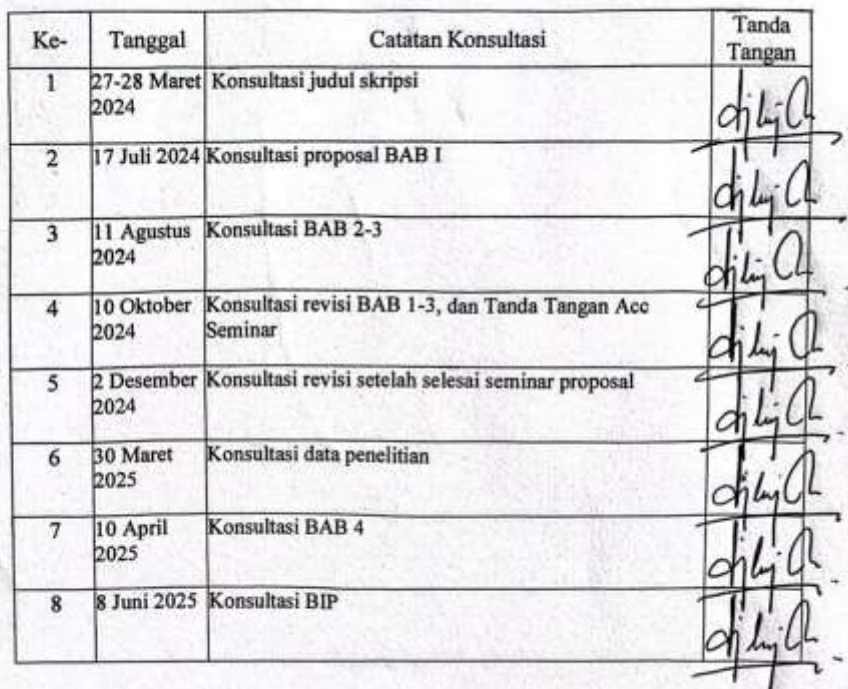 Ke- Tanggal Catatan Konsultasi Tanda Tangan
1 27-28 Maret 2024 Konsultasi judul skripsi
2 17 Juli 2024 Konsultasi proposal BAB I
3 11 Agustus 2024 Konsultasi BAB 2-3
4 10 Oktober 2024 Konsultasi revisi BAB 1-3, dan Tanda Tangan Acc Seminar
5 2 Desember 2024 Konsultasi revisi setelah selesai seminar proposal
6 30 Maret 2025 Konsultasi data penelitian
7 10 April 2025 Konsultasi BAB 4
8 8 Juni 2025 Konsultasi BIP